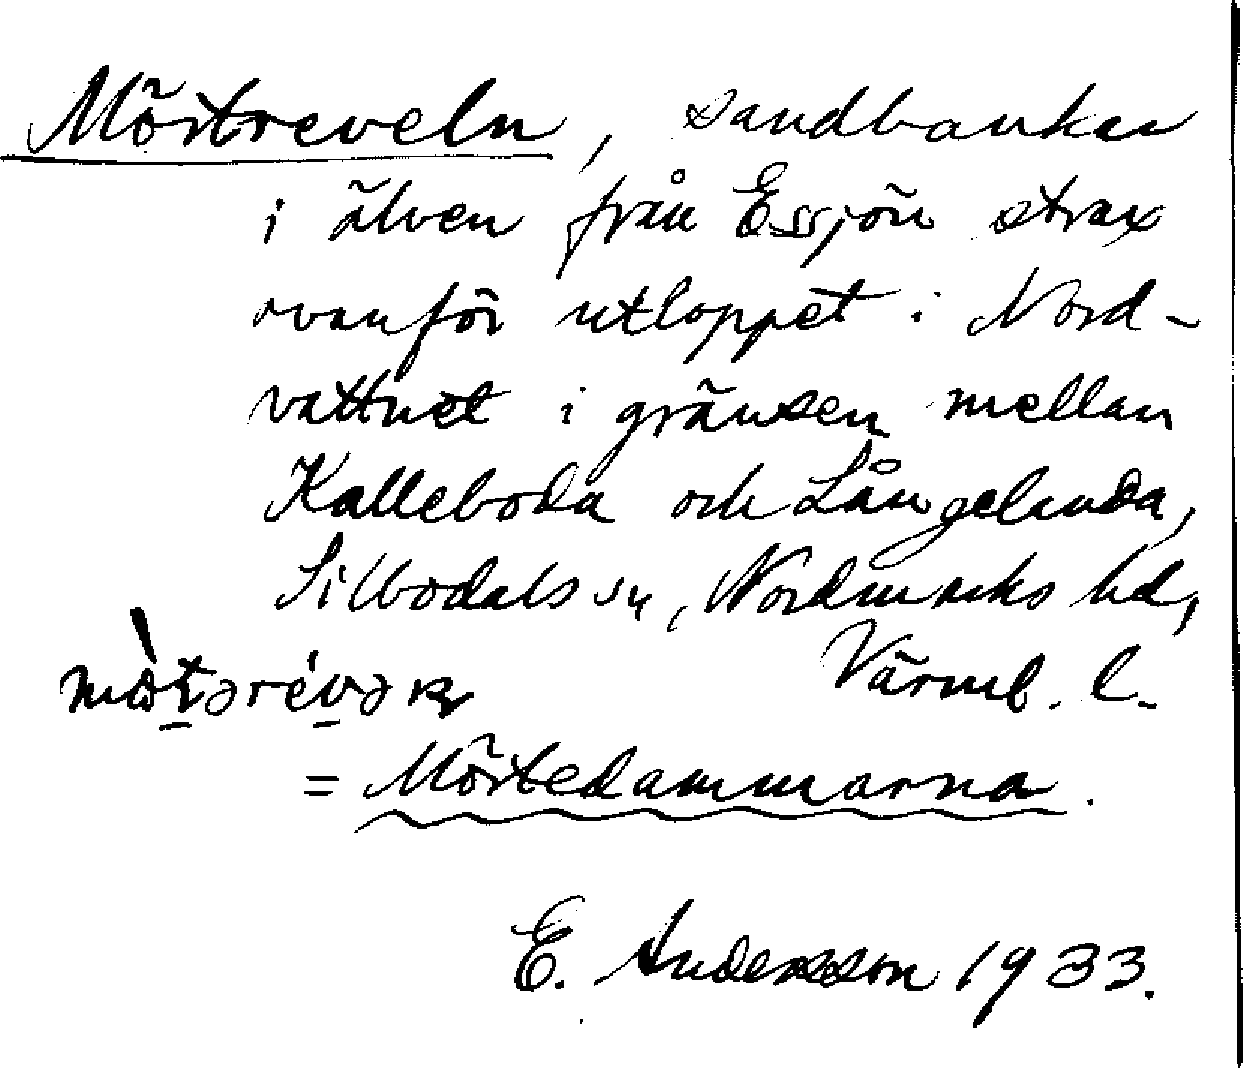 Mörtreveln, sandbankar
i älven från Essjön strax
ovanför utloppet i Nord-
vattnet i gränsen mellan
Kalleboda och Långelanda,
Silbodals sn, Nordmarks hd,
Värml. l.
= Mörtedammarna.
E. Andersson 1933.